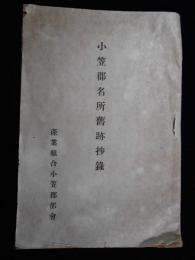 小笠郡名所舊跡抄錄
産業組合小笠郡部會